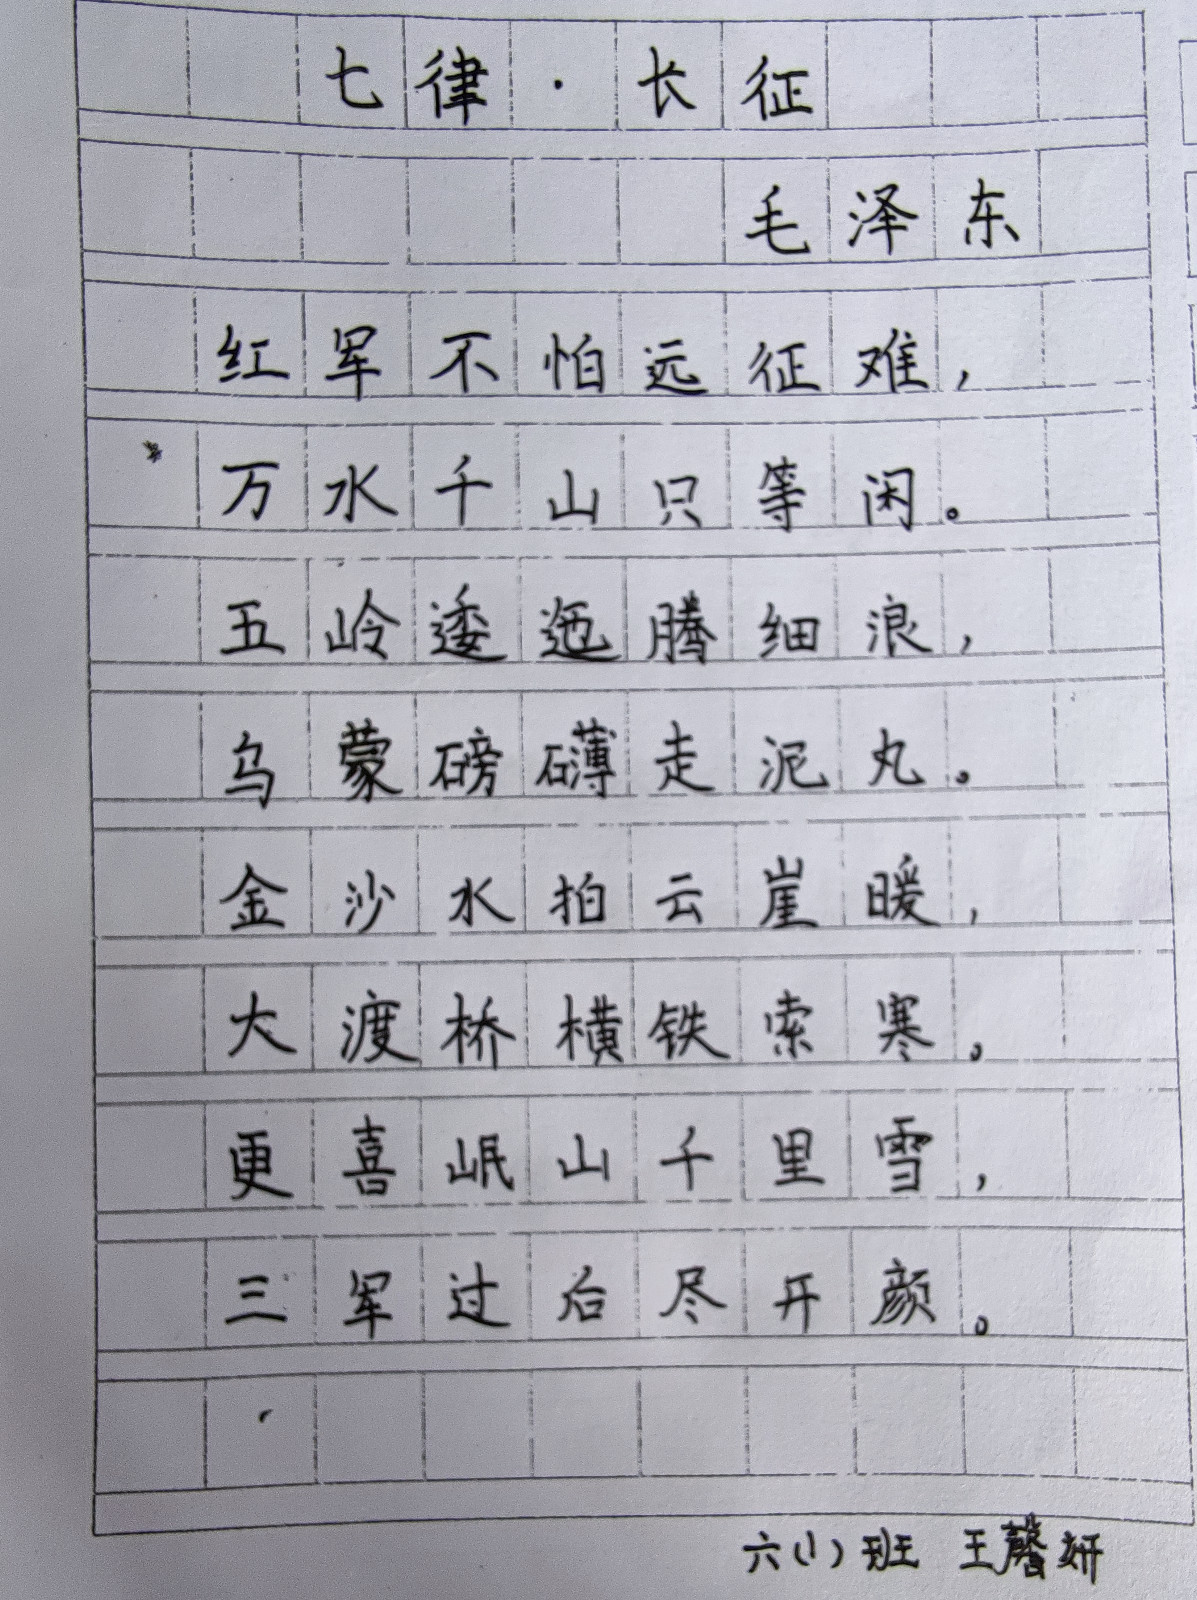 七律·长征
毛泽东
红军不怕远征难，
万水千山只等闲。
五岭逶迤腾细浪，
乌蒙磅礴走泥丸。
金沙水拍云崖暖，
大渡桥横铁索寒。
更喜岷山千里雪，
三军过后尽开颜。
六(1)班 王馨妍